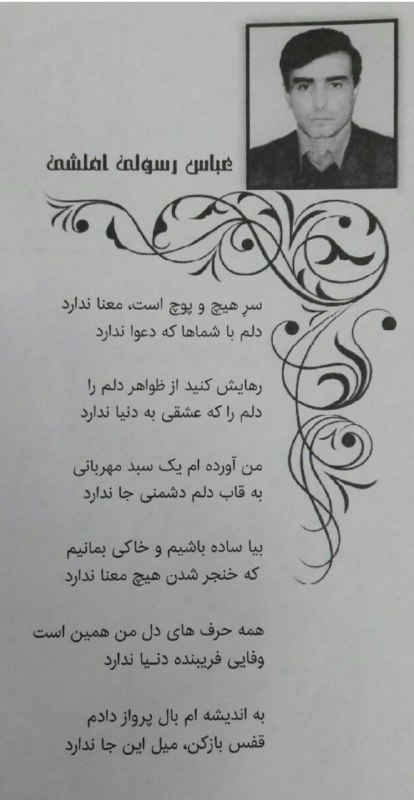 عباس رسولی املشی
سرِ هیچ و پوچ است، معنا ندارد
دلم با شماها که دعوا ندارد
رهایش کنید از ظواهر دلم را
دلم را که عشقی به دنیا ندارد
من آورده ام یک سبد مهربانی
به قاب دلم دشمنی جا ندارد
بیا ساده باشیم و خاکی بمانیم
که خنجر شدن هیچ معنا ندارد
همه حرف های دل من همین است
وفایی فریبنده دنیا ندارد
به اندیشه ام بال پرواز دادم
قفس بازکن، میل این جا ندارد